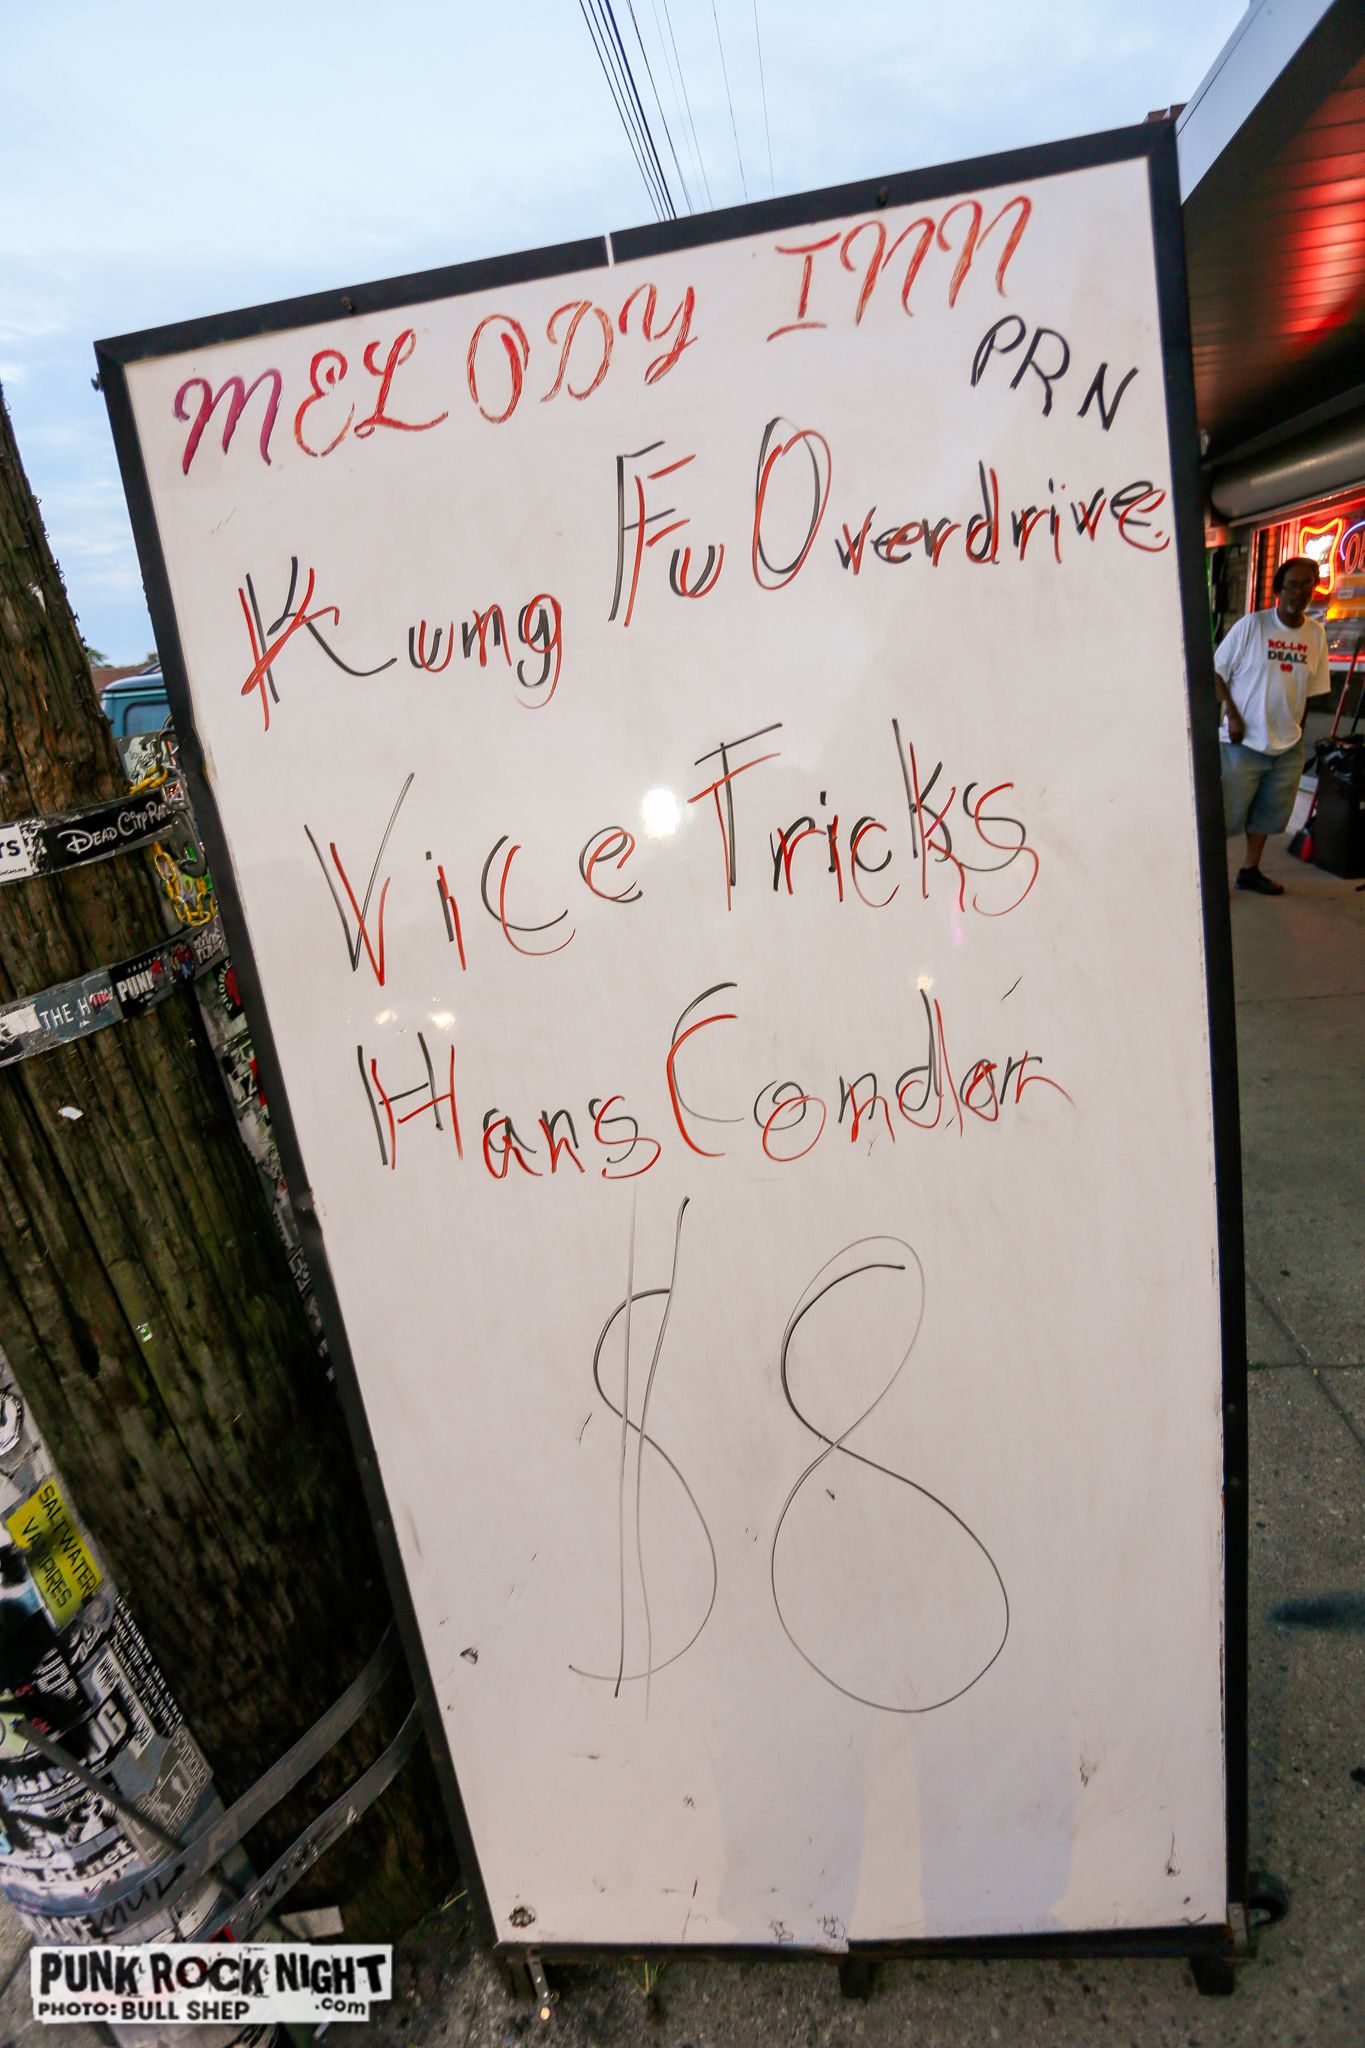 MELODY INN
PRN
Kung Fu Overdrive
Vice Tricks
Hans Condor
$8
ROLLIN
DEALZ
DEAD CITY
THE
PUNK
SALTWATER
VAMPIRES
PUNK ROCK NIGHT
.com
PHOTO: BULL SHEP